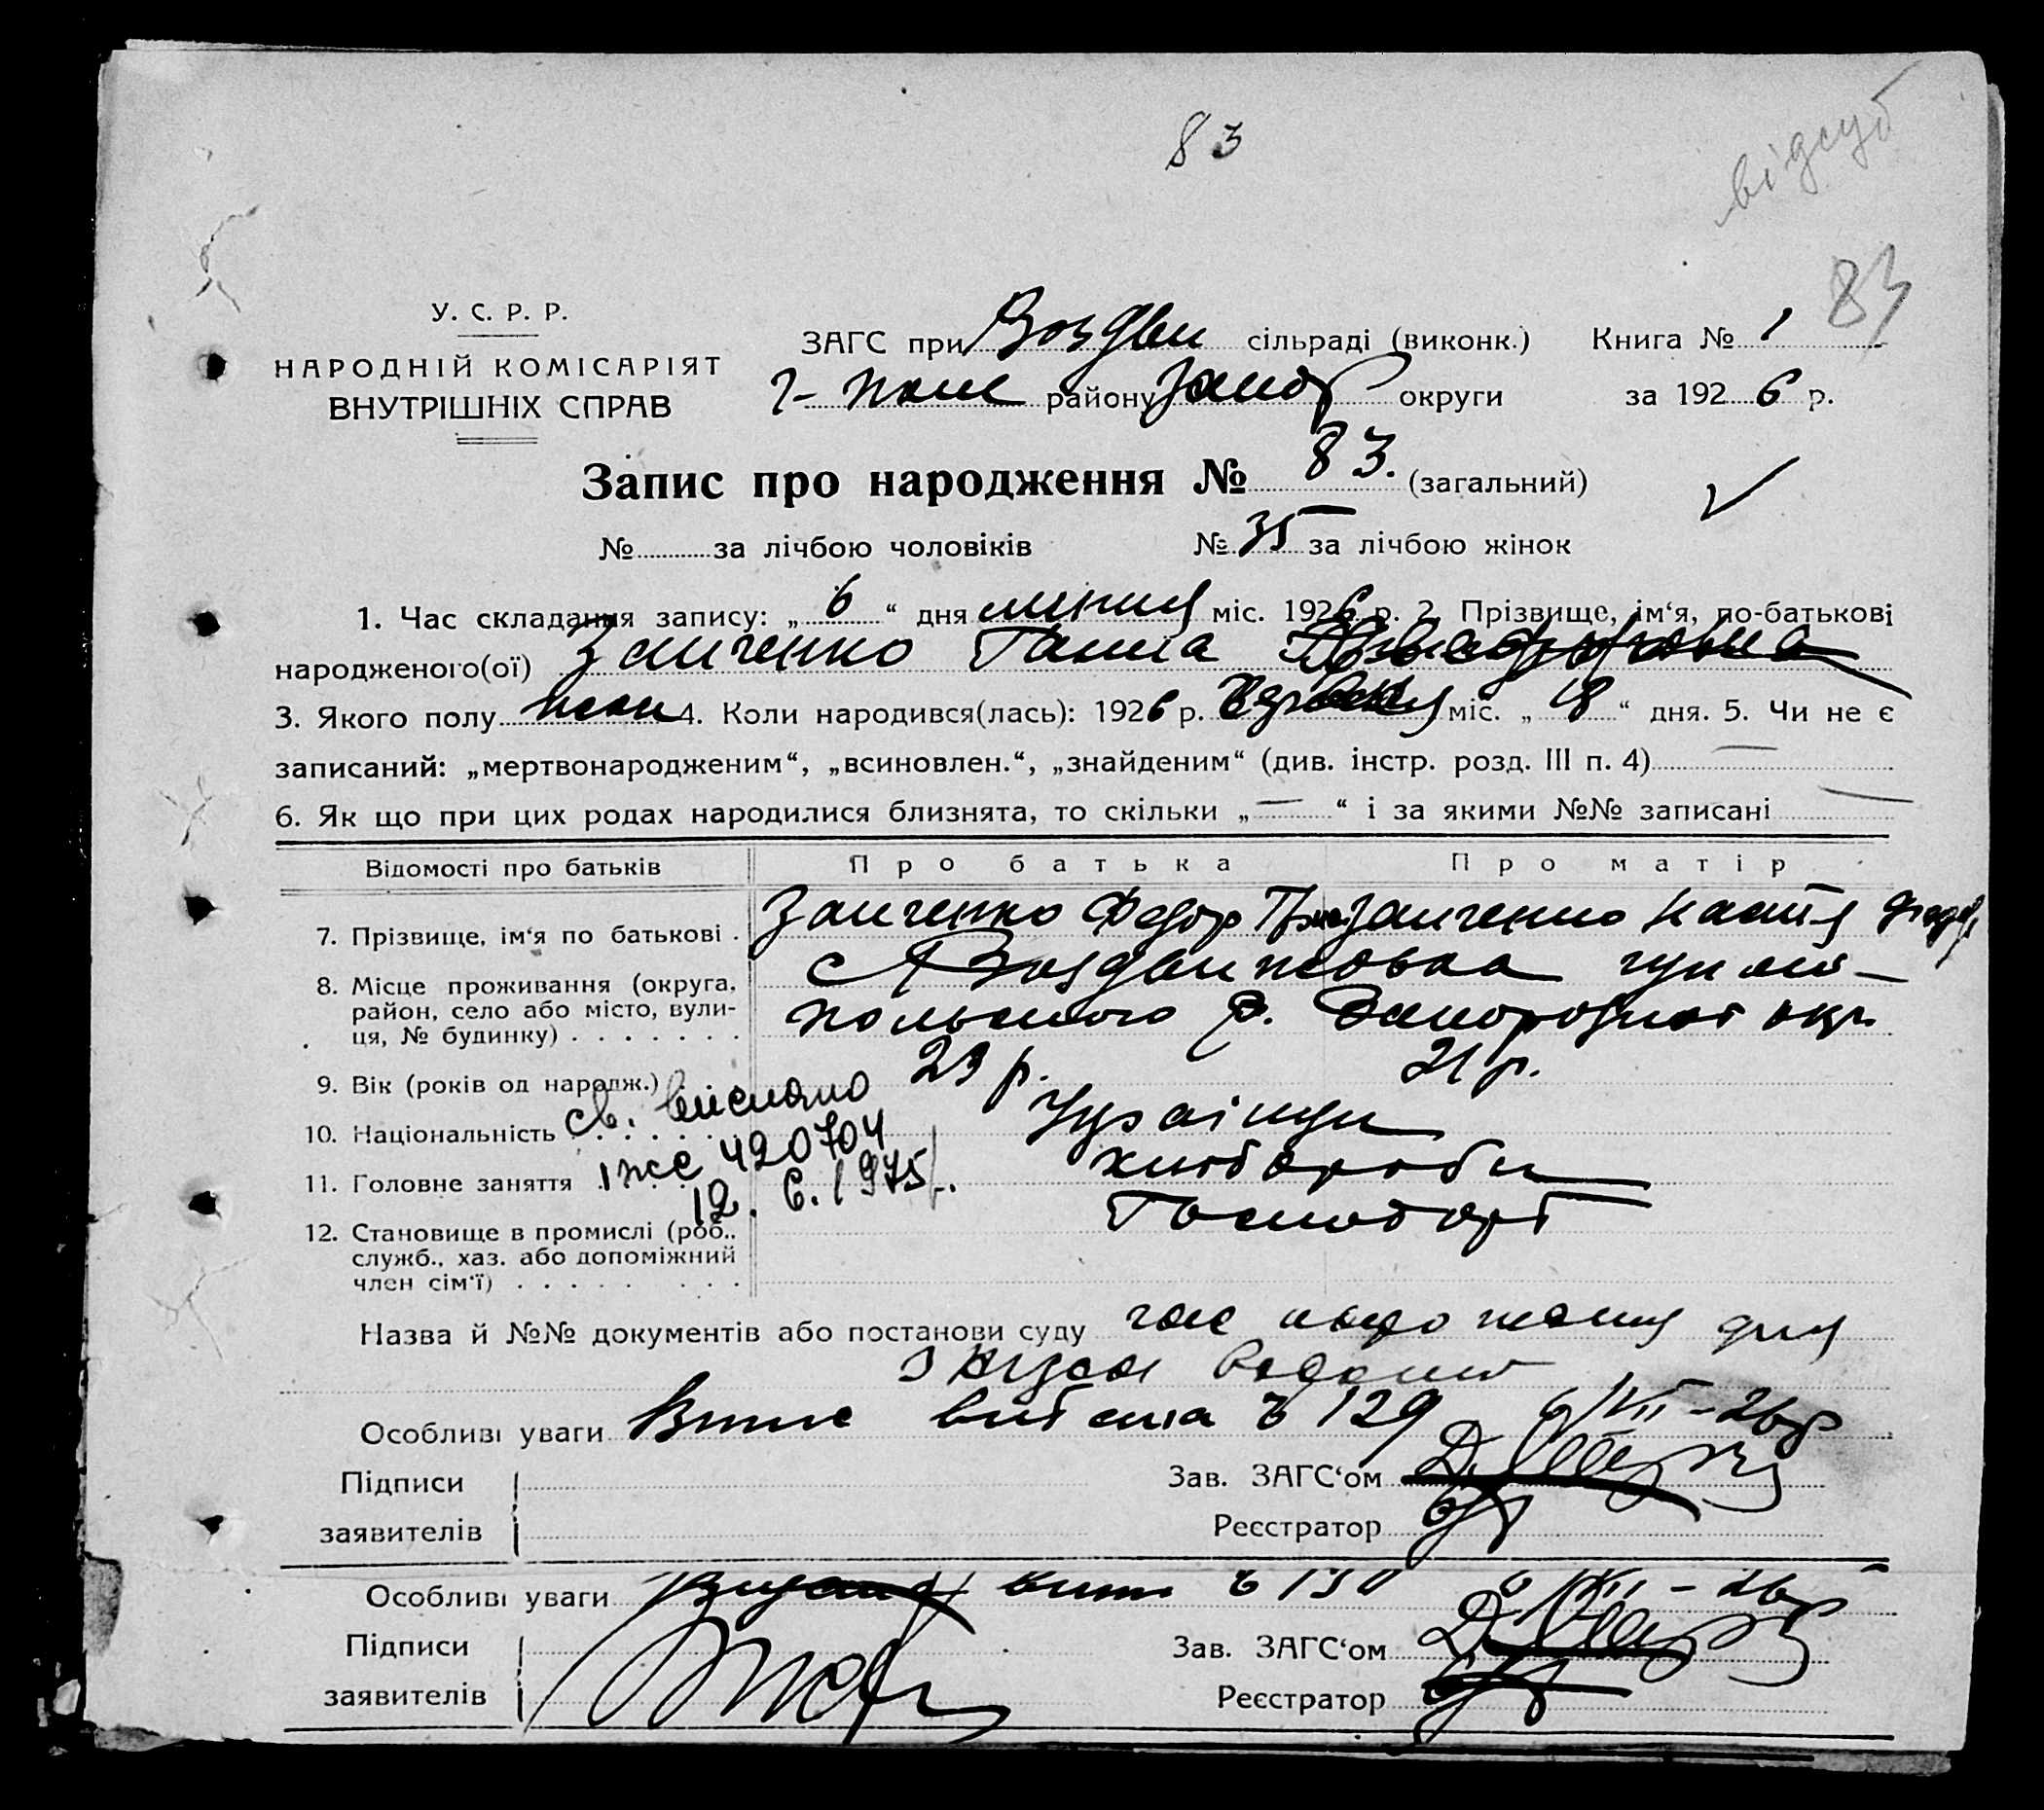 83
відсуб
83
У. С. Р. Р.
НАРОДНІЙ КОМІСАРІЯТ
ВНУТРІШНІХ СПРАВ
ЗАГС при Воздви сільраді (виконк.) Книга № 1
Г-поле району Запор округи за 1926 р.
Запис про народження № 83. (загальний)
№ за лічбою чоловіків № 35 за лічбою жінок
1. Час складання запису: „ 6 “ дня липня міс. 1926 р. 2. Прізвище, ім‘я, по-батькові
народженого(ої) Заиченко Ганна
3. Якого полу жен 4. Коли народився(лась): 1926 р. міс. „ 18 “ дня. 5. Чи не є
записаний: „мертвонародженим“, „всиновлен.“, „знайденим“ (див. інстр. розд. III п. 4) —
6. Як що при цих родах народилися близнята, то скільки „ — “ і за якими №№ записані —
Відомості про батьків Про батька Про матір
7. Прізвище, ім‘я по батькові . Заиченко Федор Заиченко Настя
8. Місце проживання (округа, район, село або місто, вулиця, № будинку) с Воздвижовка гуляй-
польского р. Запорожкої окр.
9. Вік (років од народж.) 23 р. 21 р.
10. Національність Українци
св. вислано
11. Головне заняття хлібороби
1 жс 420704
12. 6. 1975р.
12. Становище в промислі (роб., служб., хаз. або допоміжний член сім‘ї) Господарі
Назва й №№ документів або постанови суду
Особливі уваги № 129 6/VII-26р
Підписи
заявителів
Зав. ЗАГС‘ом
Реєстратор
Особливі уваги № 130 6/VII-26р
Підписи
заявителів
Зав. ЗАГС‘ом
Реєстратор